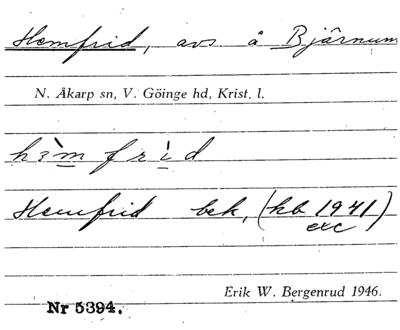 Hemfrid, avs å Bjärnum
N. Åkarp sn, V. Göinge hd, Krist. l.
hɜ̀m frìd
Hemfrid bek, (kb 1941)
exc
Erik W. Bergenrud 1946.
Nr 5394.